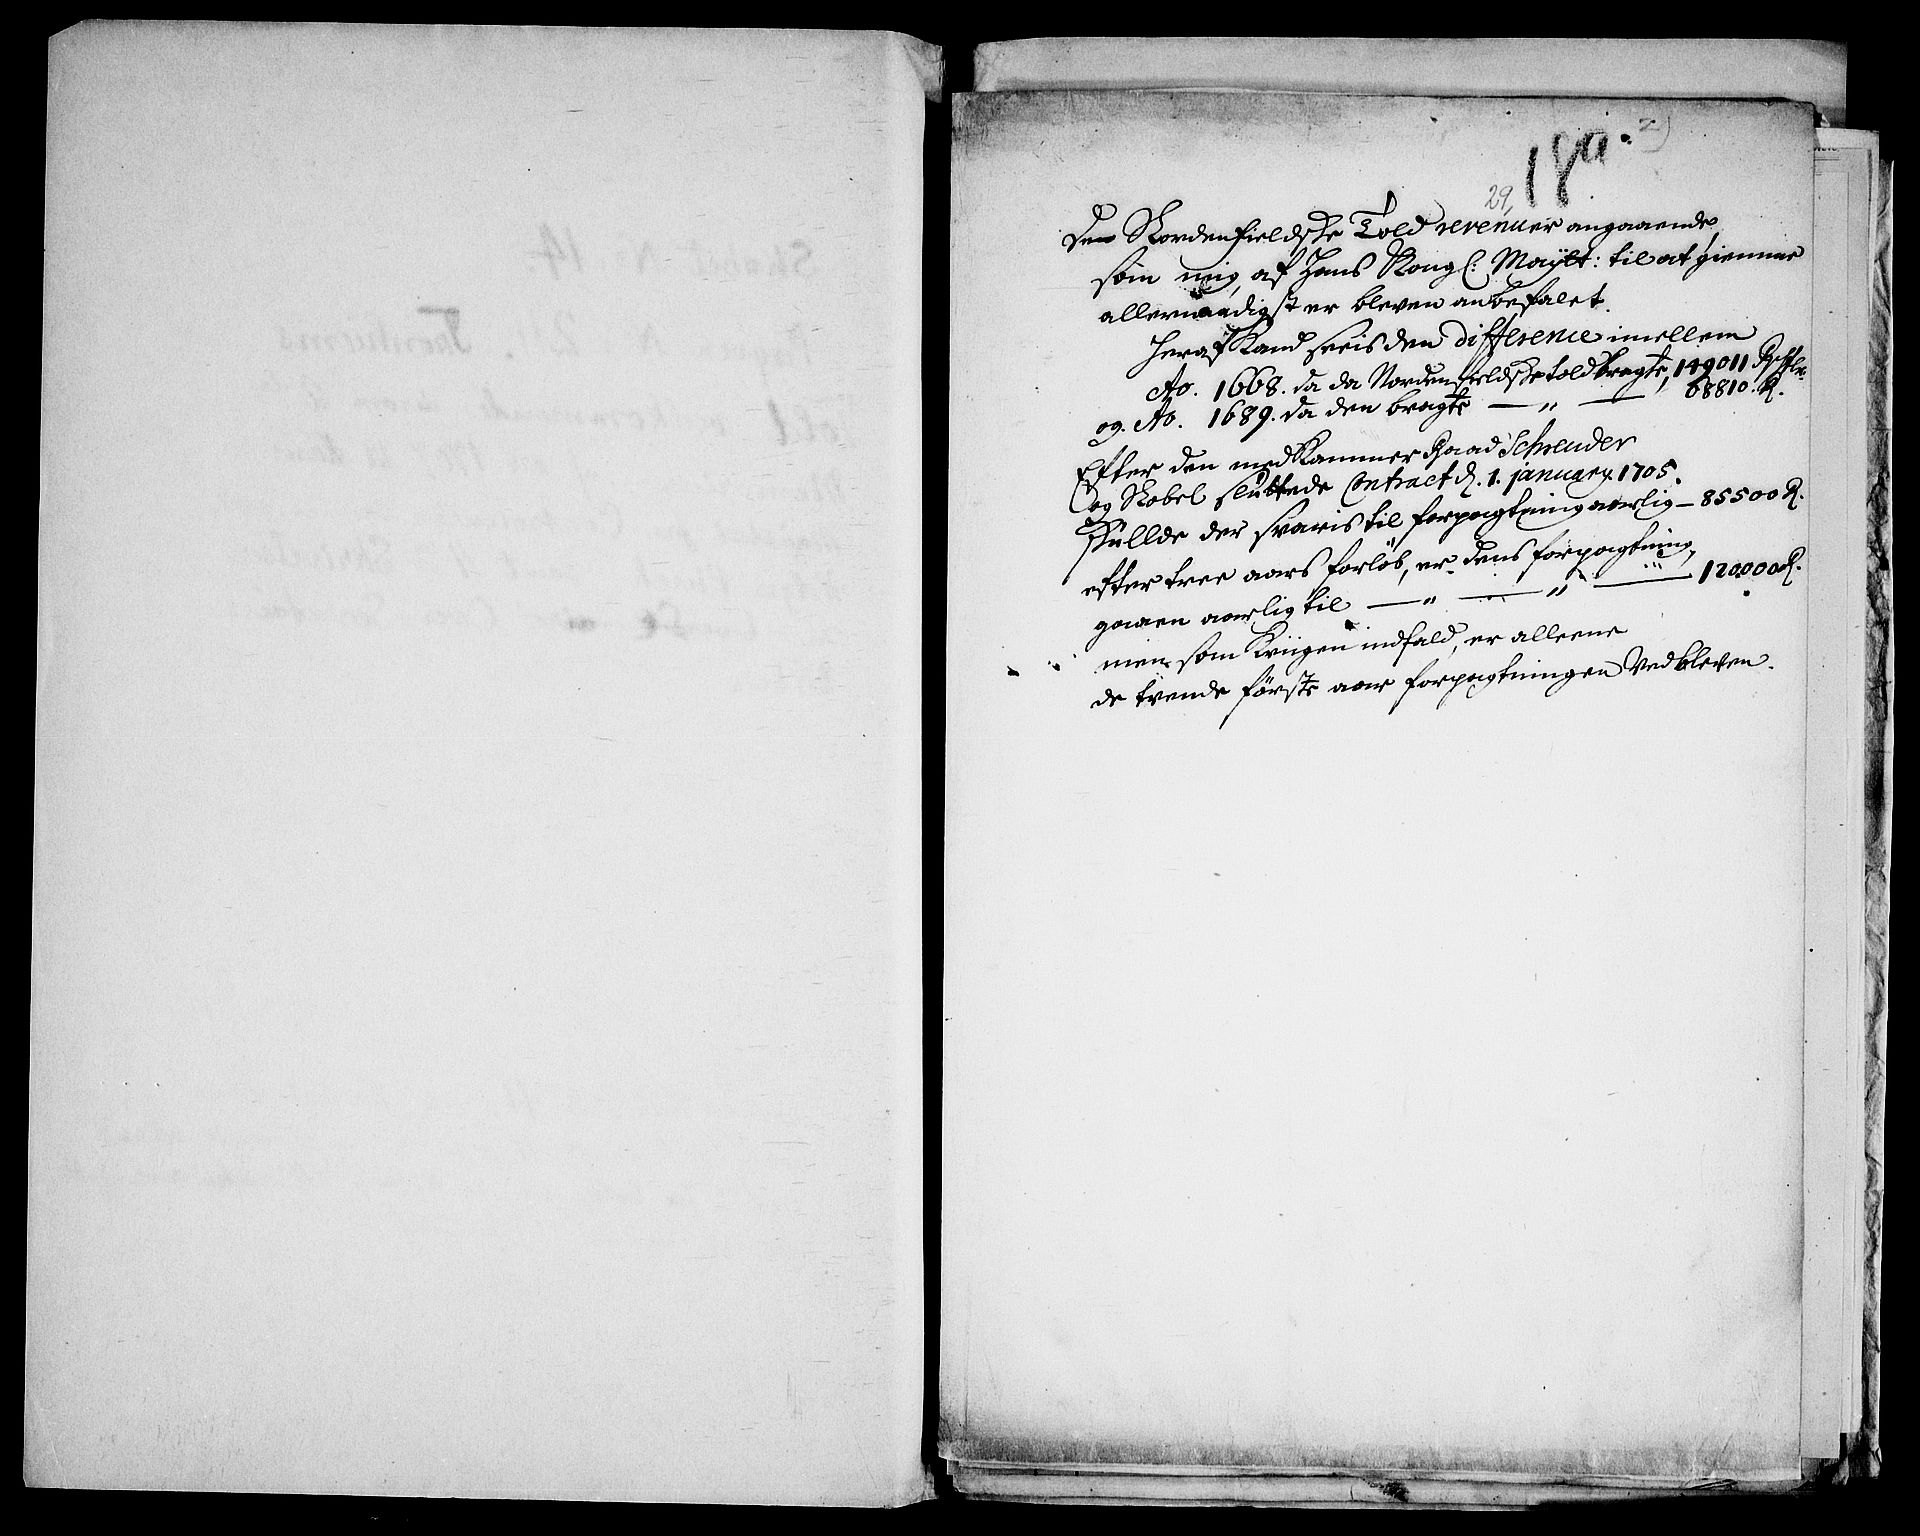 18a. 2)
29,
Den Nordenfieldske Told revenuer angaaende,
som mig, af Hans Kongl: Mayst: til at giemme
allernaadigst er bleven anbefalet.
Heraf Kand seeis den difference imellem
Ao. 1668. da da Nordenfieldske told bragte, 149011 Rdlr
og. Ao. 1689. da den bragte — „ — 68810. R.
Efter den med Kammer Raad Schreuder
og Nobel sluttede Contract d. 1. january 1705.
skullde der svaris til forpagtning aarlig — 85500 R.
efter tree aars forløb, er dens forpagtning,
gaaen aarlig til — „ — „ — 120000 R.
men som Kriigen indfald, er alleene
de trende første aar forpagtningen Vedbleven.